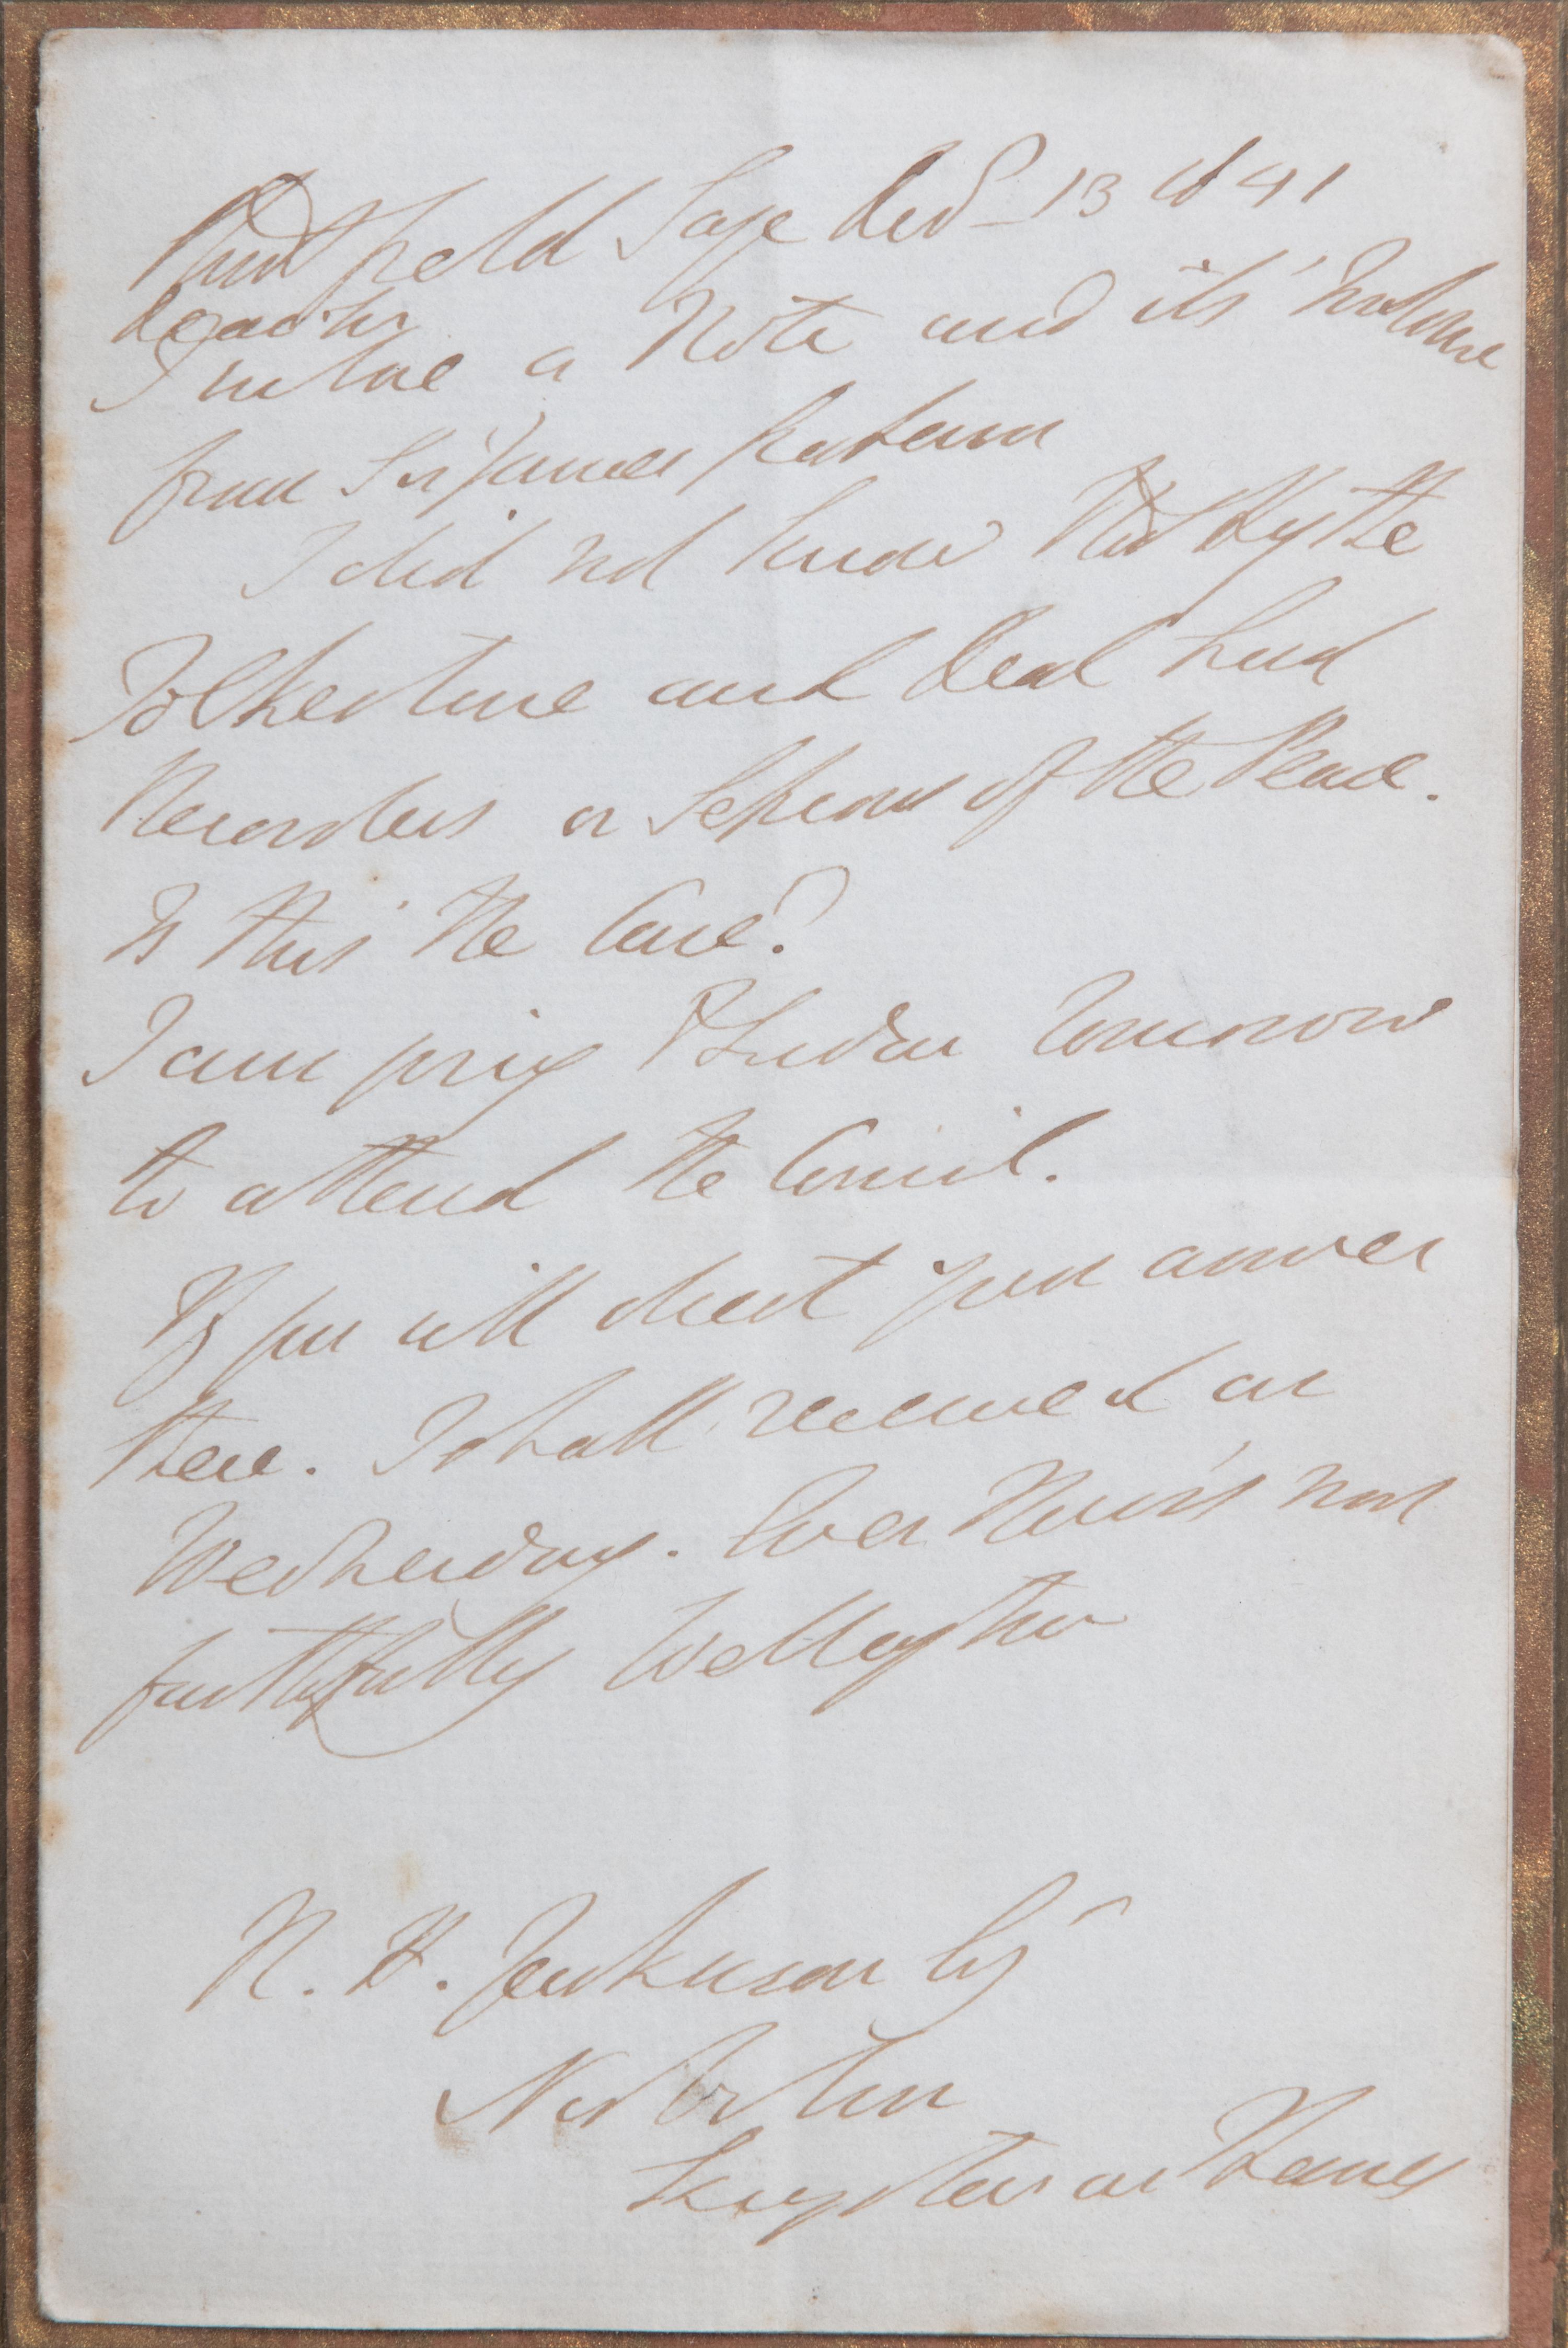 Strathfield Saye Decr 13 1841
Dear Sir
I inclose a Note and its' Inclosure
from Sir James Graham
I did not know that Hythe
Folkestone and Deal had
Recorders or Sessions of the Peace.
Is this the Case?
I am going to London tomorrow
to attend the Council.
If you will direct your answer
there. I shall receive it on
Wednesday. Ever Yours most
faithfully Wellington
R. H. Jenkinson Esq
Norbiton
Kingston on Thames